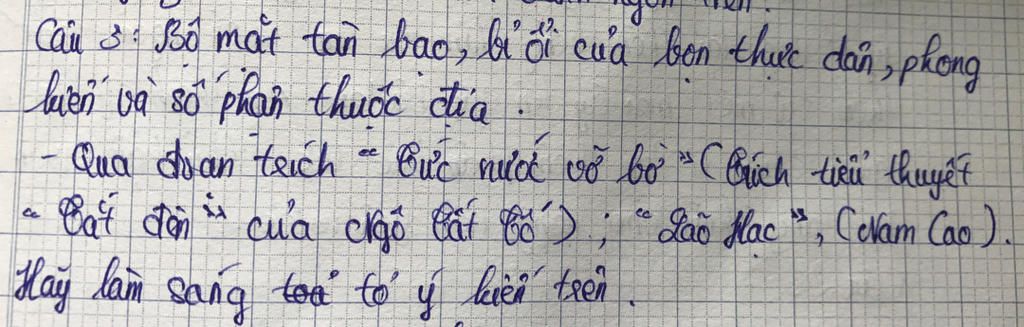 Câu 3: Bộ mặt tàn bạo, bỉ ổi của bọn thực dân, phong
kiến và số phận thuộc địa.
- Qua đoạn trích "Tức nước vỡ bờ" (Trích tiểu thuyết
"Tắt đèn" của Ngô Tất Tố); "Lão Hạc", (Nam Cao).
Hãy làm sáng toả tỏ ý kiến trên.